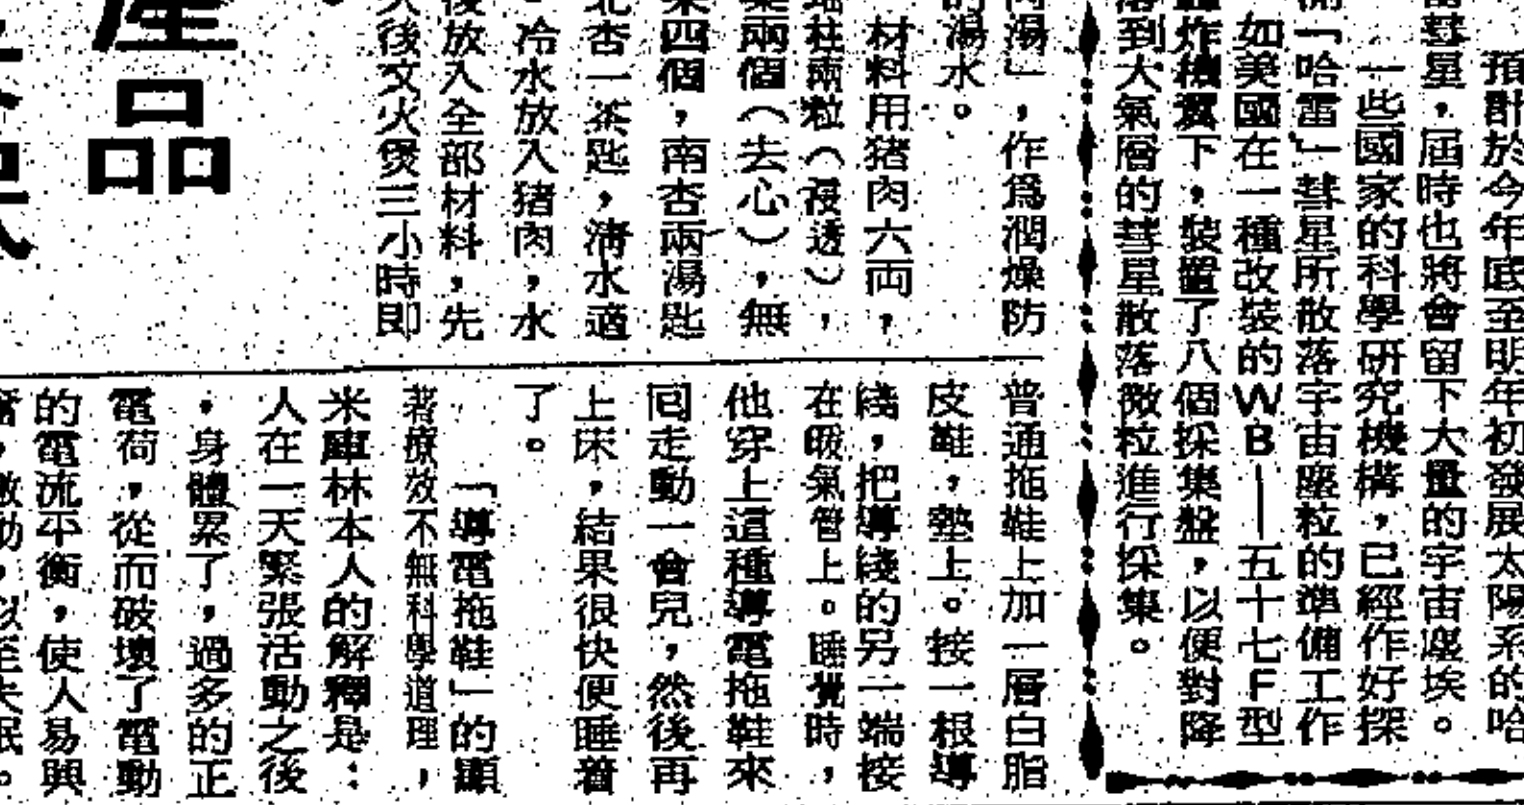 預計於今年底至明年初發展太陽系的哈
彗星，屆時也將會留下大量的宇宙塵埃。
一些國家的科學研究機構，已經作好探
「哈雷」彗星所散落宇宙塵粒的準備工作
如美國在一種改裝的WB—五十七F型
炸機翼下，裝置了八個採集盤，以便對降
落到大氣層的彗星散落微粒進行採集。
肉湯」，作爲潤燥防
的湯水。
材料用猪肉六両，
柱兩粒（浸透），
兩個（去心），無
四個，南杏兩湯匙
北杏一茶匙，清水適
。冷水放入猪肉，水
後放入全部材料，先
後文火煲三小時即
產品
普通拖鞋上加一層白脂
皮鞋，墊上。接一根導
綫，把導綫的另一端接
在暖氣管上。睡覺時，
他穿上這種導電拖鞋來
回走動一會兒，然後再
上床，結果很快便睡着
了。
「導電拖鞋」的顯
著療效不無科學道理，
米庫林本人的解釋是：
人在一天緊張活動之後
，身體累了，過多的正
電荷，從而破壞了電動
的電流平衡，使人易興
奮，激動，以至失眠。